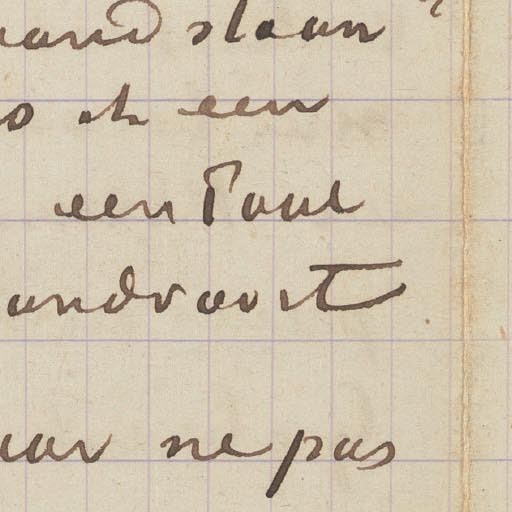 and slaan
ik een
een Paul
andvoort
aar ne pas